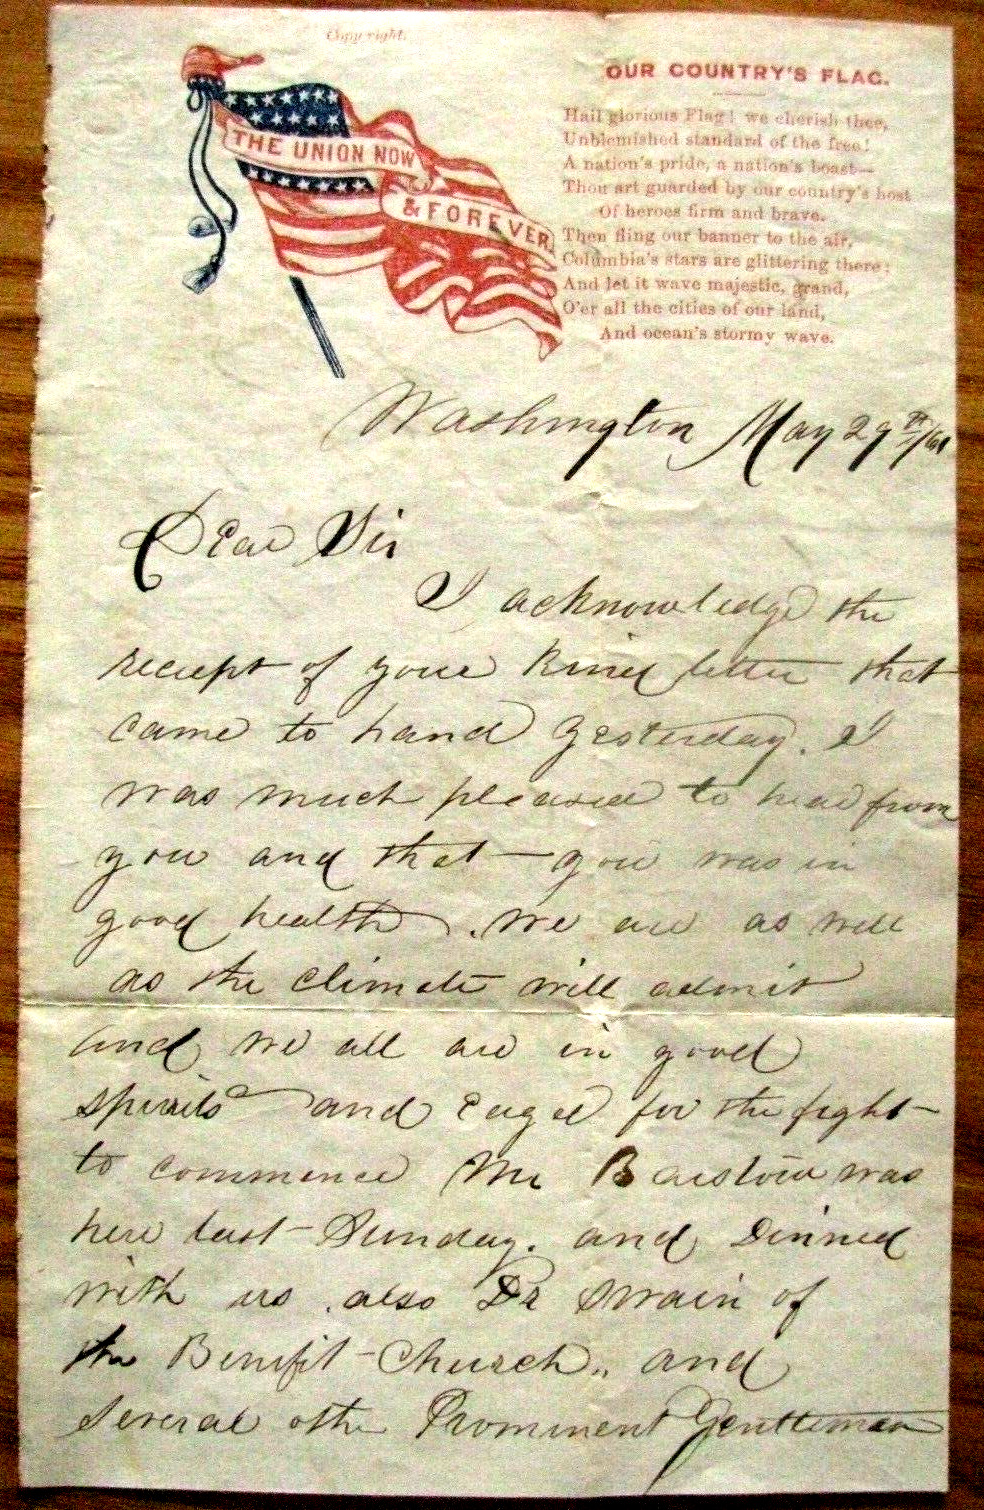 Copy right.
THE UNION NOW
& FOREVER.
OUR COUNTRY'S FLAG.
Hail glorious Flag! we cherish thee,
Unblemished standard of the free!
A nation's pride, a nation's boast—
Thou art guarded by our country's host
Of heroes firm and brave.
Then fling our banner to the air,
Columbia's stars are glittering there;
And let it wave majestic, grand,
O'er all the cities of our land,
And ocean's stormy wave.
Washington May 29th/61
Dear Sir
I acknowledge the
receipt of your kind letter that
came to hand yesterday. I
was much pleased to hear from
you and that you was in
good health. we are as well
as the climate will admit
and we all are in good
spirits and eager for the fight
to commence Mr Barstow was
here last Sunday. and Dinned
with us. also Dr Swain of
the Benifit Church,, and
several other Prominent Gentleman